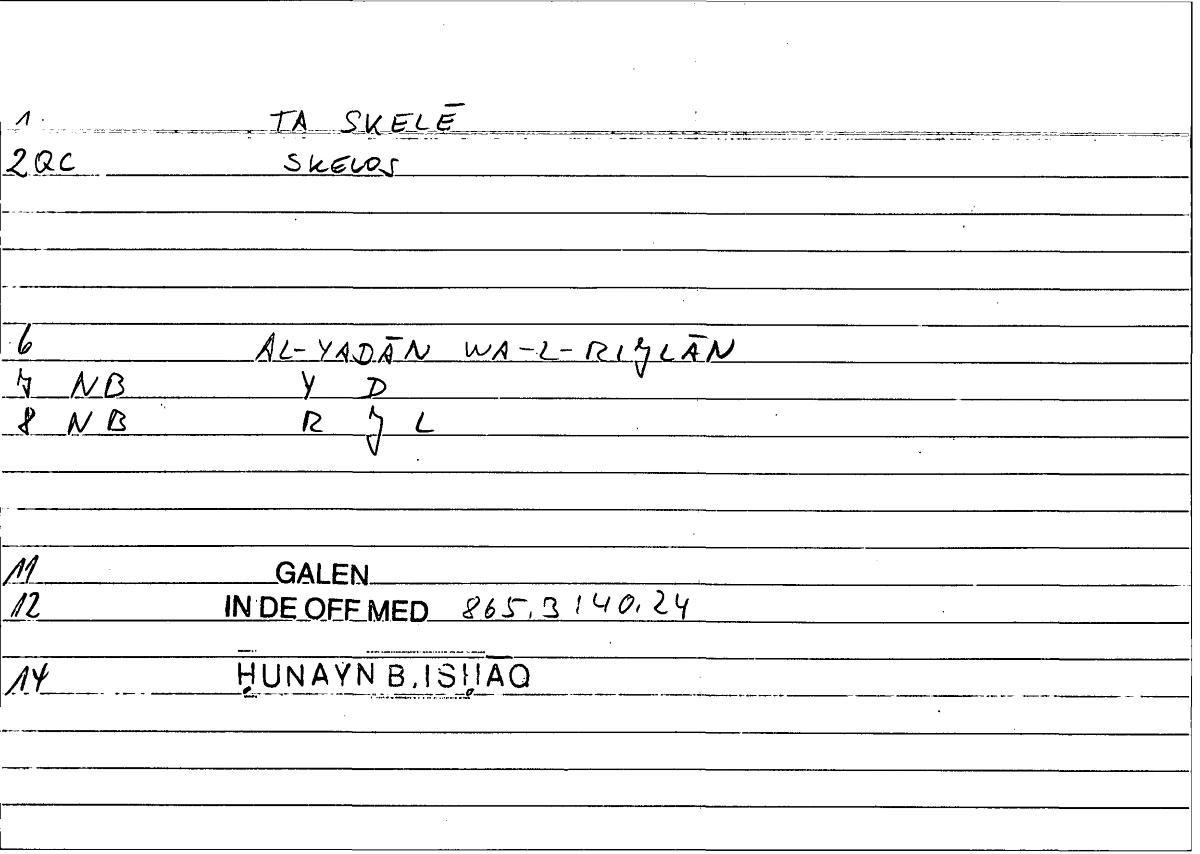 1 TA SKELĒ
2 QC SKELOS
6 AL-YADĀN WA-L-RIJLĀN
7 NB Y D
8 NB R J L
11 GALEN
12 IN DE OFF MED 865.3 140.24
14 ḤUNAYN B. ISḤĀQ